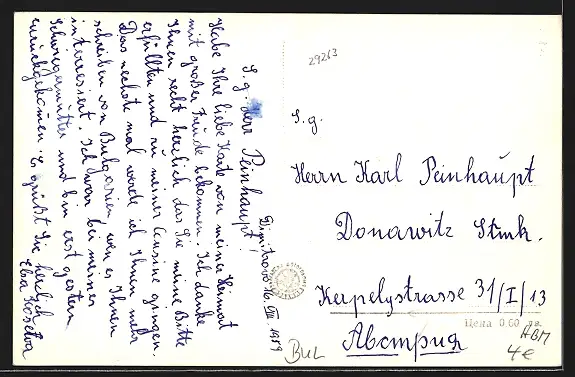 S. g. Herr Peinhaupt!
Habe Ihre liebe Karte von meiner Heimat
mit großer Freude bekommen. Ich danke
Ihnen recht herzlich das Sie meine Bitte
erfüllten und zu meiner Cusine gingen.
Das nechste mal werde ich Ihnen mehr
schreiben von Bulgarien wen es Ihnen
interresiert. Ich war bei meiner
Schwiegermutter und bin erst gestern
zurückgekomen. Es grüßt Sie herzlich
Eva
Dimitrovo 16. VII. 1959
29263
S. g.
Herrn Karl Peinhaupt
Donawitz Stmk.
Kerpelystrasse 31/I/13
Австрия
Цена 0,60 лв.
BUL
ABM
4€